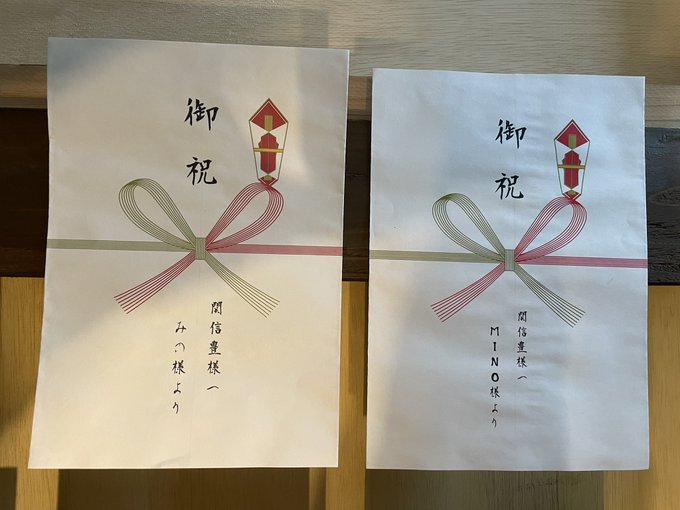 御祝
関信豊様へ
みの様より
御祝
関信豊様へ
MINO様より